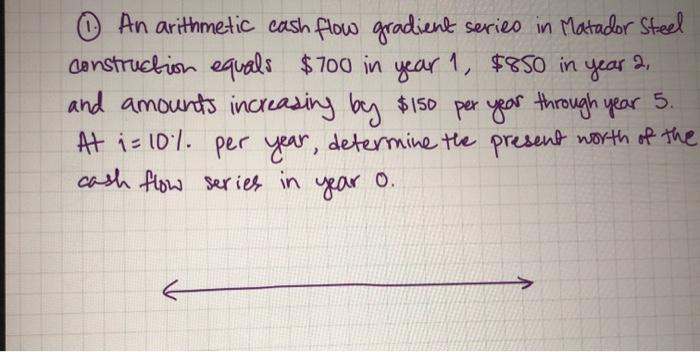 ① An arithmetic cash flow gradient series in Matador Steel
construction equals $700 in year 1, $850 in year 2,
and amounts increasing by $150 per year through year 5.
At i = 10%. per year, determine the present worth of the
cash flow series in year 0.